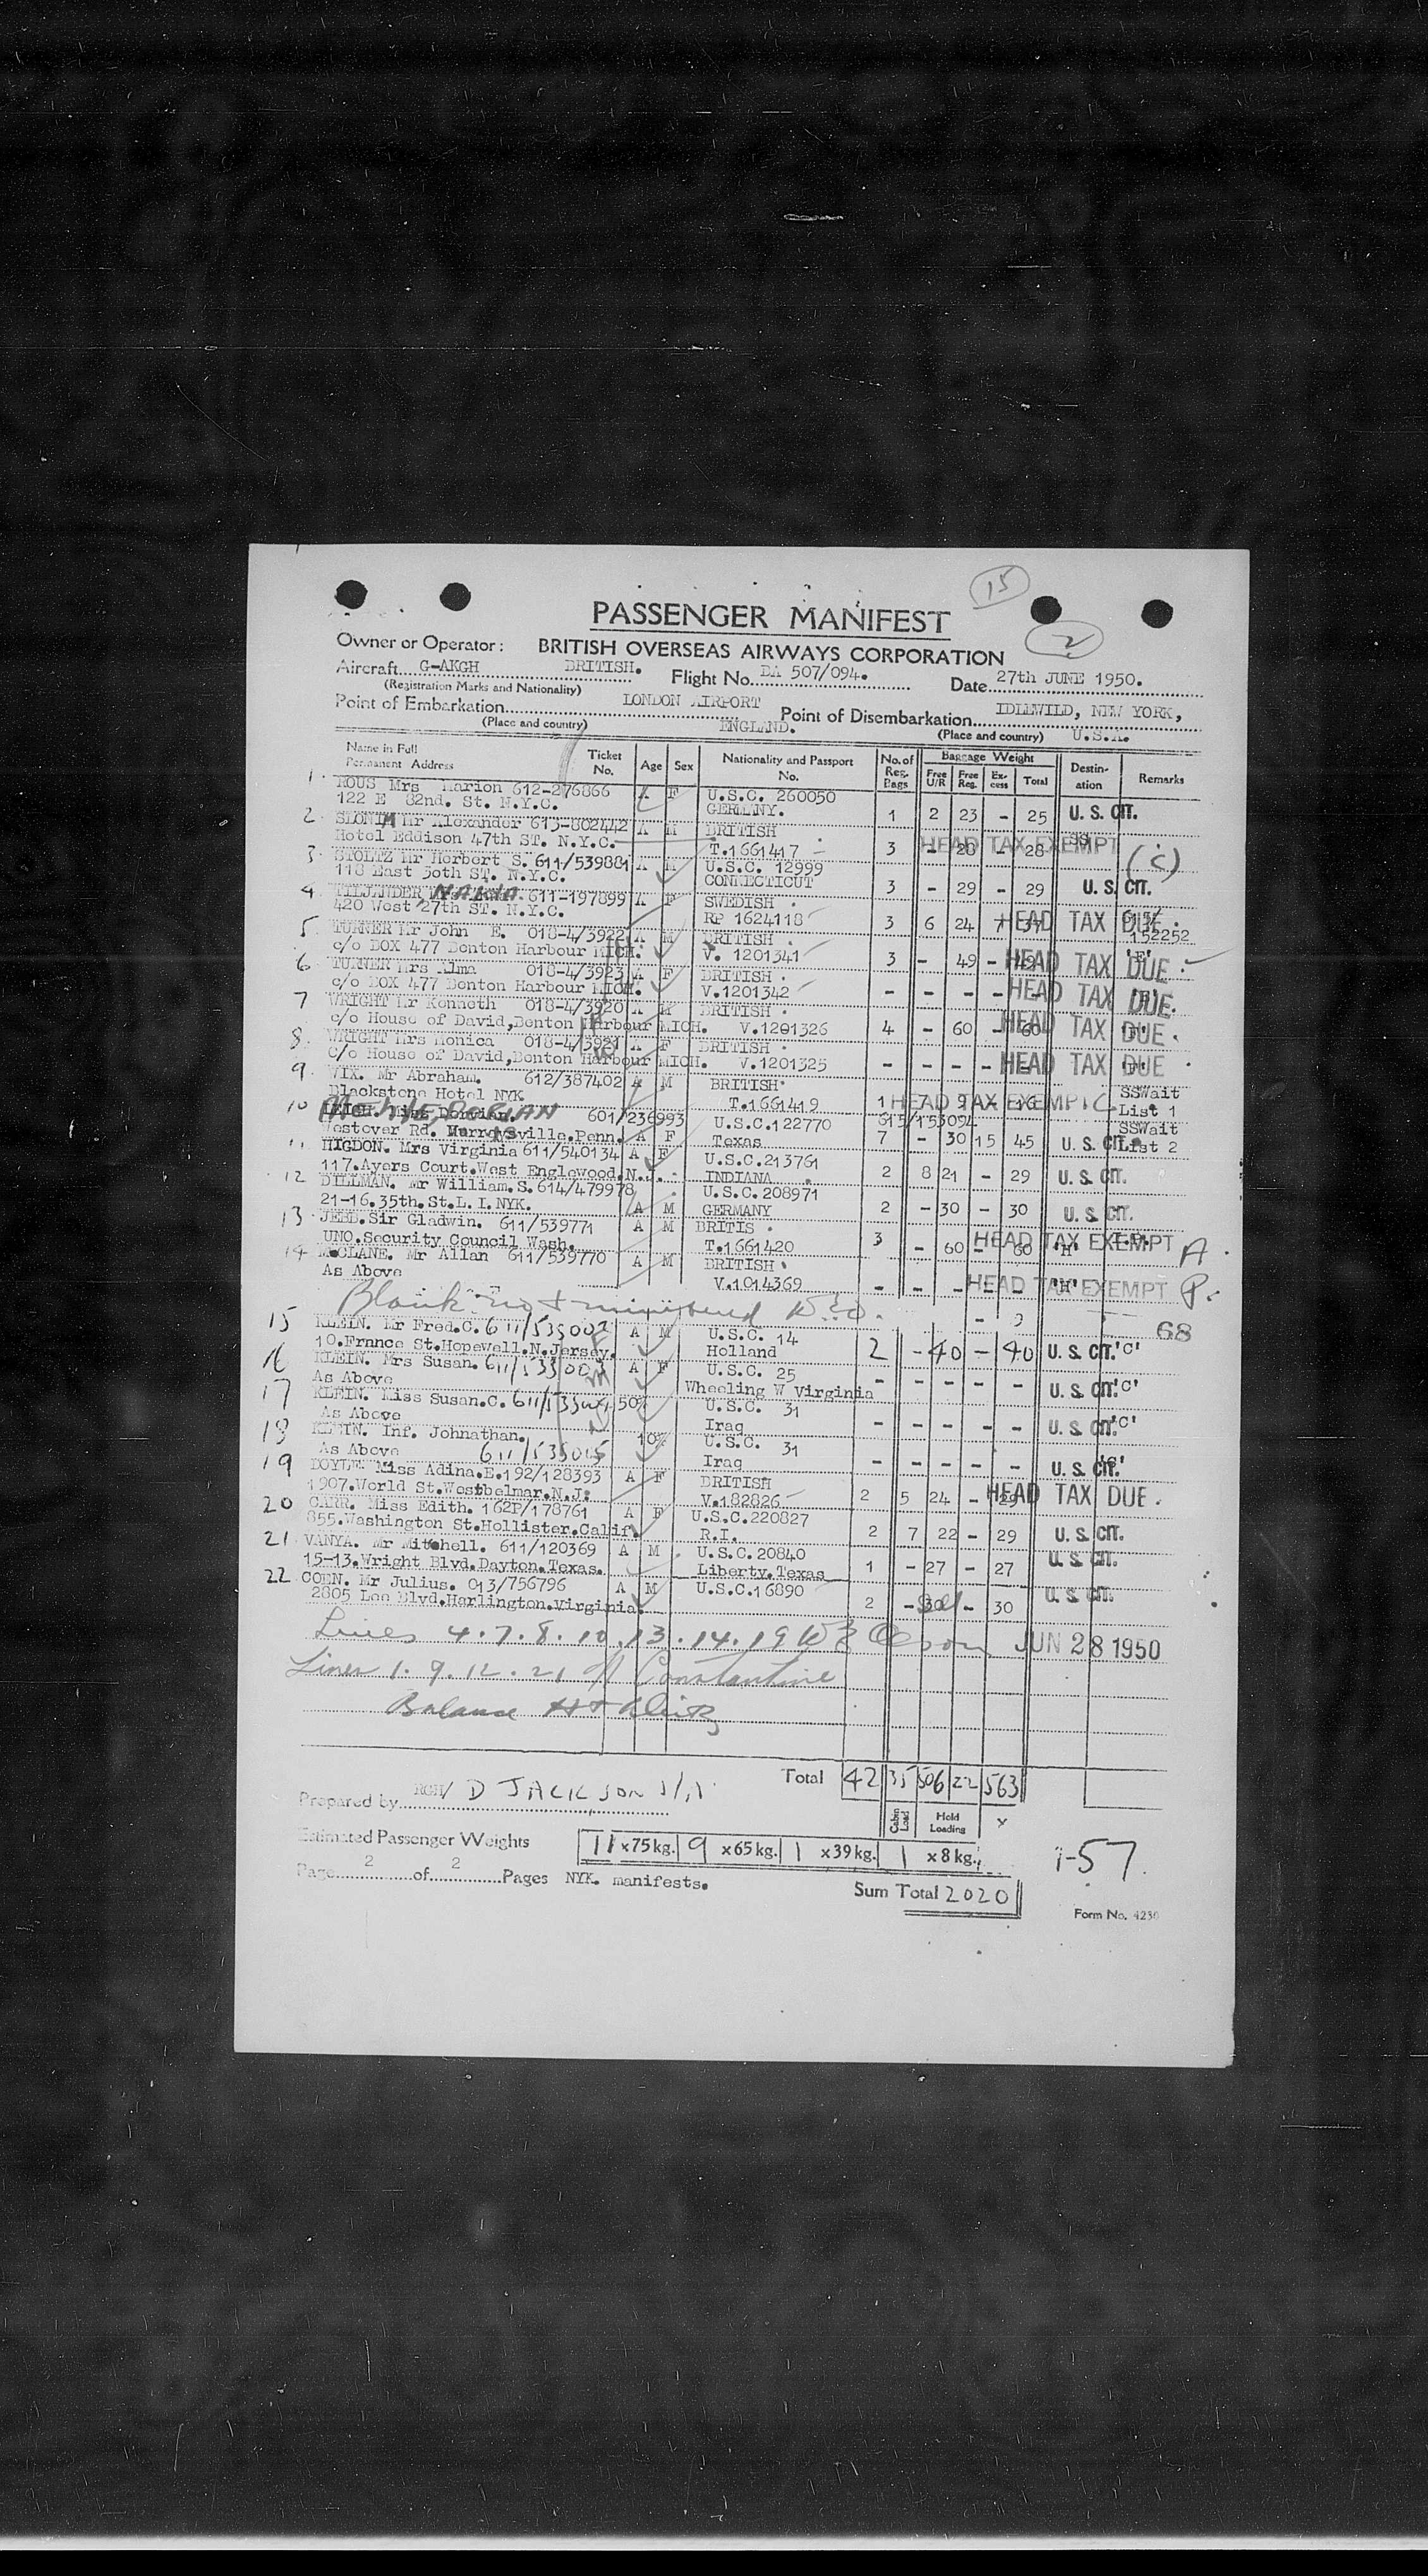 15
PASSENGER MANIFEST
2
Owner or Operator: BRITISH OVERSEAS AIRWAYS CORPORATION
Aircraft G-AKGH BRITISH. Flight No. DA 507/094. Date 27th JUNE 1950.
(Registration Marks and Nationality)
Point of Embarkation LONDON AIRPORT Point of Disembarkation IDLEWILD, NEW YORK,
(Place and country) ENGLAND. (Place and country) U.S.A.
Name in Full Ticket Age Sex Nationality and Passport No. of Baggage Weight Destin- Remarks
Permanent Address No. No. Reg. Bags Free U/R Free Reg. Ex- cess Total ation
1. ROUS Mrs Marion 612-276866 A F U.S.C. 260050
122 E 82nd. St. N.Y.C. GERMANY. 1 2 23 - 25 U. S. CIT.
2. SLONIM Mr Alexander 613-802442 A M BRITISH
Hotel Eddison 47th ST. N.Y.C. T.1661417 3 - 28 - 28 HEAD TAX EXEMPT (C)
3. STOLTZ Mr Herbert S. 611/539881 A M U.S.C. 12999
118 East 30th ST. N.Y.C. CONNECTICUT 3 - 29 - 29 U. S. CIT.
4. 611-197899 A F SWEDISH
420 West 27th ST. N.Y.C. RP 1624118 3 6 24 7 37 HEAD TAX DUE.
152252
5. TURNER Mr John E. 018-4/3922 A M BRITISH
c/o BOX 477 Benton Harbour MICH. V. 1201341 3 - 49 - 49 HEAD TAX DUE
6. TURNER Mrs Alma 018-4/3923 A F BRITISH
c/o BOX 477 Benton Harbour MICH. V.1201342 - - - - HEAD TAX DUE.
7 WRIGHT Mr Kenneth 018-4/3920 A M BRITISH
c/o House of David, Benton Harbour MICH. V.1201326 4 - 60 - 60 HEAD TAX DUE.
8. WRIGHT Mrs Monica 018-4/3921 A F BRITISH
C/o House of David, Benton Harbour MICH. V.1201325 - - - - HEAD TAX DUE
9 WIX. Mr Abraham. 612/387402 A M BRITISH SSWait
Blackstone Hotel NYK T.1661419 1 7 9 - 16 HEAD TAX EXEMPT C List 1
10 LEIGH. Miss DORIAN 601/236993 U.S.C.122770 615/153094 SSWait
Westover Rd. Penn. A F Texas 7 - 30 15 45 U. S. CIT. List 2
11 HIGDON. Mrs Virginia 611/540134 A F U.S.C.213761
117.Ayers Court.West Englewood.N.J. INDIANA 2 8 21 - 29 U. S. CIT.
12 DILLMAN. Mr William.S. 614/479978 U.S.C.208971
21-16.35th.St.L.I.NYK. A M GERMANY 2 - 30 - 30 U. S. CIT.
13 JEBB.Sir Gladwin. 611/539771 A M BRITIS.
UNO.Security Council Wash. T.1661420 3 - 60 - 60 HEAD TAX EXEMPT A.
14 McCLANE. Mr Allan 611/539770 A M BRITISH
As Above V.1014369 - - - HEAD TAX EXEMPT P.
68
15 KLEIN. Mr Fred.C. 611/535002 A M U.S.C. 14
10.France St.Hopewell.N.Jersey. Holland 2 - 40 - 40 U. S. CIT. 'C'
16 KLEIN. Mrs Susan. 611/535003 A F U.S.C. 25
As Above Wheeling W Virginia - - - - - U. S. CIT. 'C'
17 KLEIN. Miss Susan.C. 611/535004 50% U.S.C. 31
As Above Iraq - - - - - U. S. CIT. 'C'
18 KLEIN. Inf. Johnathan. 10% U.S.C. 31
As Above 611/535005 Iraq - - - - - U. S. CIT.
19 DOYLE Miss Adina.E.192/128393 A F BRITISH
1907.World St.Westbelmar.N.J. V.182826 2 5 24 - 29 HEAD TAX DUE.
20 CARR. Miss Edith. 162P/178761 A F U.S.C.220827
855.Washington St.Hollister.Calif. R.I. 2 7 22 - 29 U. S. CIT.
21. VANYA. Mr Mitchell. 611/120369 A M U.S.C.20840
15-13.Wright Blvd.Dayton.Texas. Liberty.Texas 1 - 27 - 27 U. S. CIT.
22 COEN. Mr Julius. 013/756796 A M U.S.C.16890
2805 Lee Blvd.Harlington.Virginia. 2 - 30 - 30 U. S. CIT.
Lines 4.7.8.10.13.14.19 JUN 28 1950
Lines 1.9.12.21 Constantine
Balance
Total 42 35 506 22 563
Prepared by RGH/ D JACKSON
Cabin Load Hold Loading x
Estimated Passenger Weights 11 x75kg. 9 x65kg. 1 x39kg. 1 x8kg. 1-57.
Page 2 of 2 Pages NYK. manifests.
Sum Total 2020
Form No. 4230